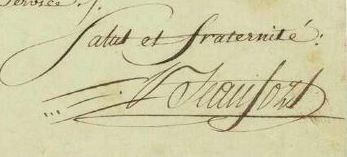 Service ./.
Salut et fraternité:
Beaufort